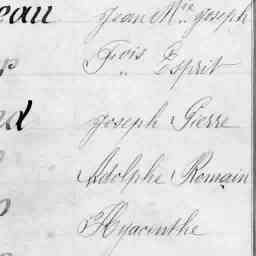 eau Jean Mie Joseph
Fois Esprit
Joseph Pierre
Adolphe Romain
Hyacinthe